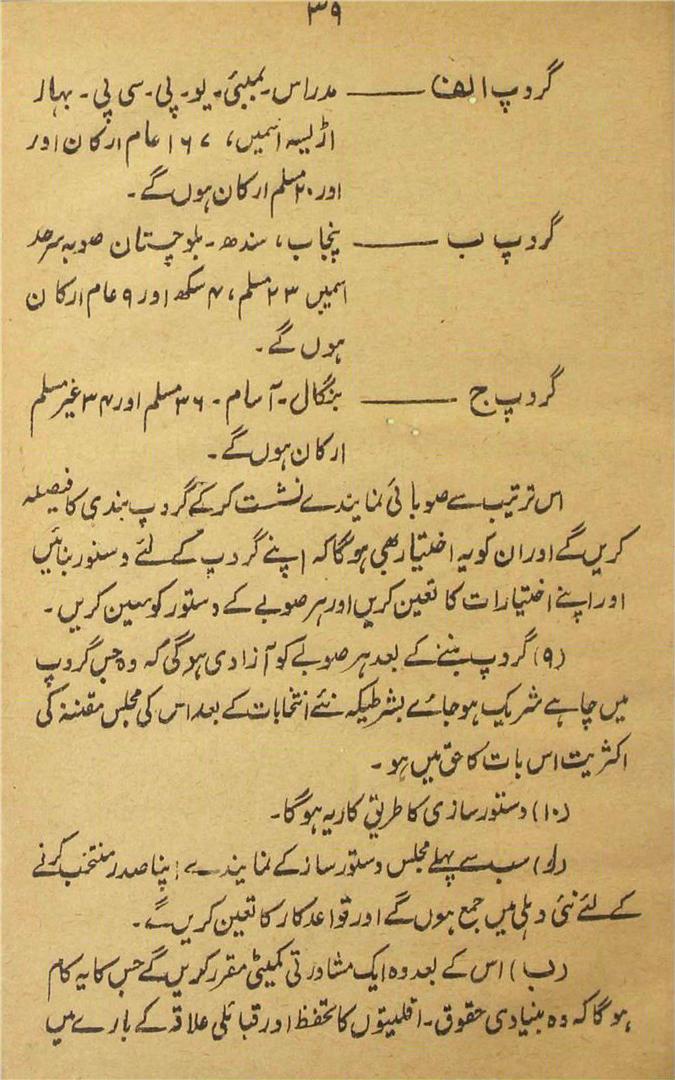 ۳۹
گروپ الف ——— مدراس۔ بمبئی۔ یو۔ پی۔ سی پی۔ بہار
اڑلیسہ اسمیں، ۱۶۷ عام ارکان اور
اور ۲۰ مسلم ارکان ہوں گے۔
گروپ ب ——— پنجاب، سندھ۔ بلوچستان صوبہ سرحد
اسمیں ۲۳ مسلم، ۴ سکھ اور ۹ عام ارکان
ہوں گے۔
گروپ ج ——— بنگال۔ آسام۔ ۳۶ مسلم اور ۳۴ غیر مسلم
ارکان ہوں گے۔
اس ترتیب سے صوبائی نمایندے نشست کر کے گروپ بندی کا فیصلہ
کریں گے اور ان کو یہ اختیار بھی ہو گا کہ اپنے گروپ کے لئے دستور بنائیں
اور اپنے اختیارات کا تعین کریں اور ہر صوبے کے دستور کو معین کریں۔
(۹) گروپ بننے کے بعد ہر صوبے کو آزادی ہو گی کہ وہ جس گروپ
میں چاہے شریک ہو جائے بشرطیکہ نئے انتخابات کے بعد اس کی مجلس مقننہ کی
اکثریت اس بات کا حق میں ہو۔
(۱۰) دستور سازی کا طریق کار یہ ہو گا۔
(ا) سب سے پہلے مجلس دستور ساز کے نمایندے اپنا صدر منتخب کرنے
کے لئے نئی دہلی میں جمع ہوں گے اور قواعد کار کا تعین کریں گے۔
(ب) اس کے بعد وہ ایک مشاورتی کمیٹی مقرر کریں گے جس کا یہ کام
ہو گا کہ وہ بنیادی حقوق۔ اقلیتوں کا تحفظ اور قبائلی علاقہ کے بارے میں